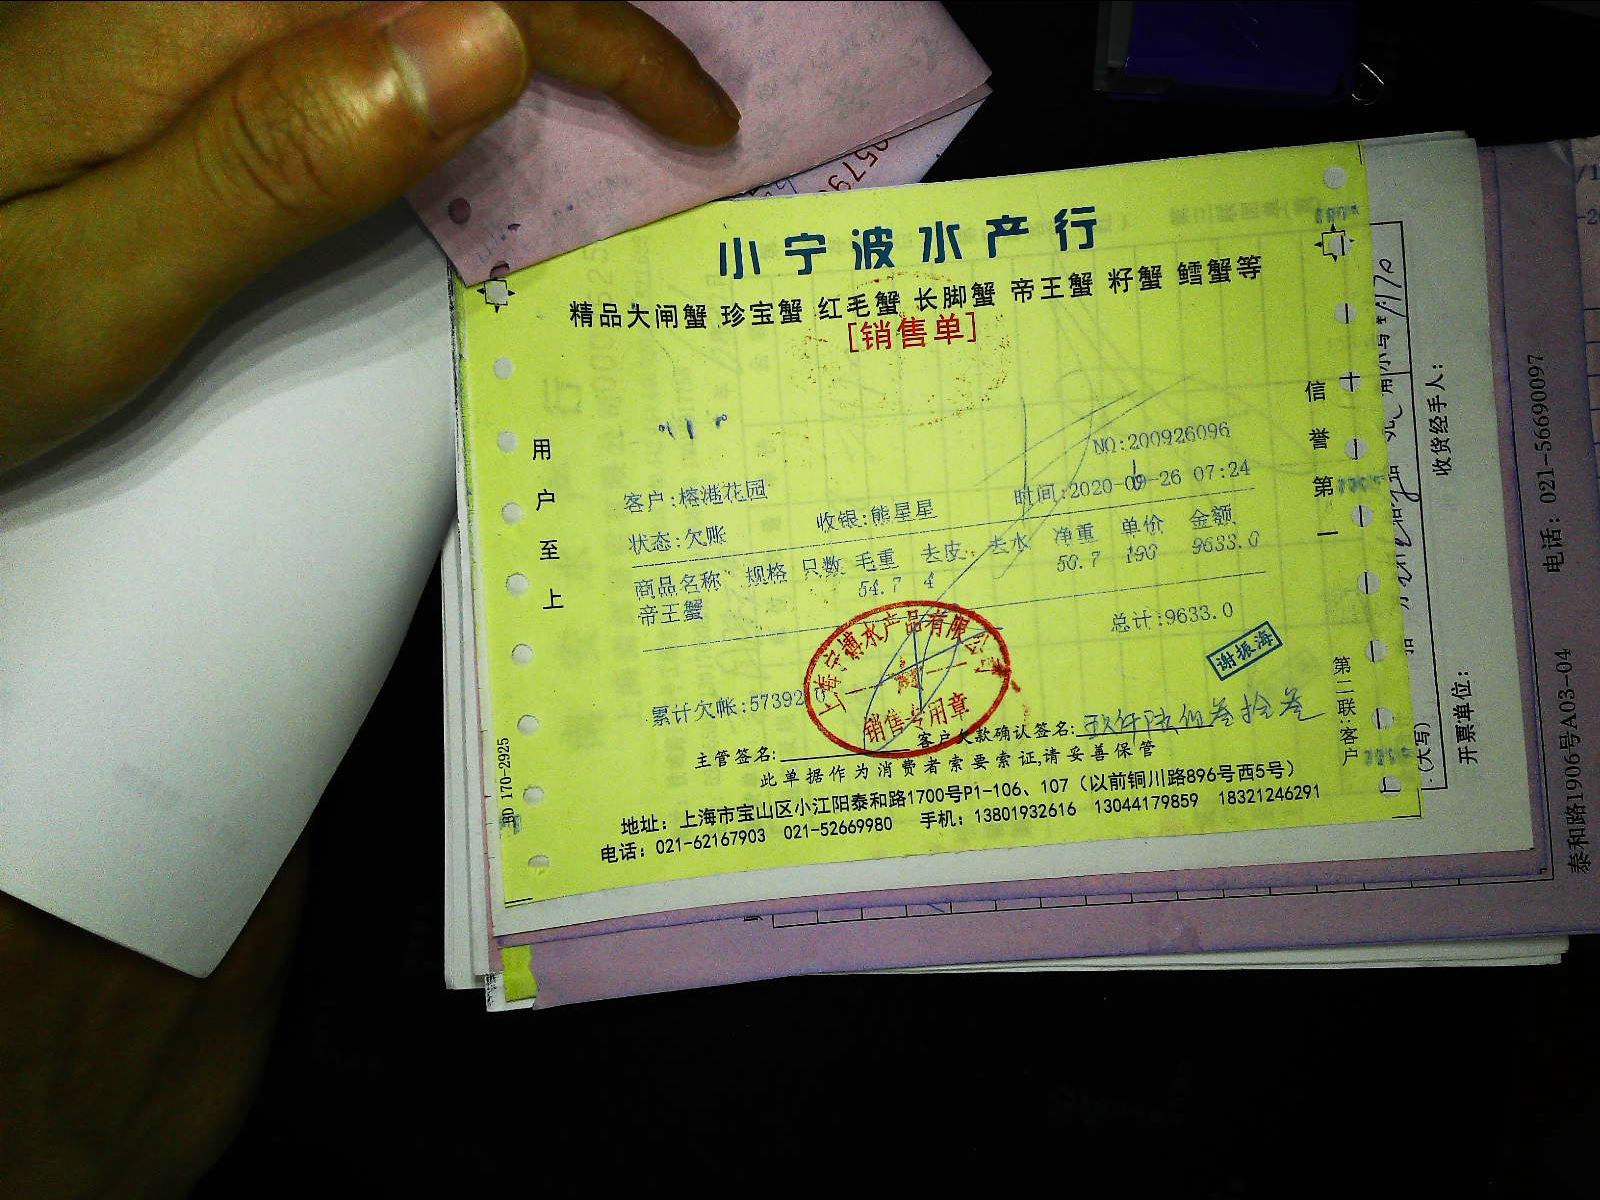 小宁波水产行
精品大闸蟹 珍宝蟹 红毛蟹 长脚蟹 帝王蟹 籽蟹 鳕蟹等
[销售单]
用户至上
信誉第一
NO:200926096
客户:榕港花园
时间:2020-09-26 07:24
状态:欠账
收银:熊星星
商品名称 规格 只数 毛重 去皮 去水 净重 单价 金额
帝王蟹 54.7 4 50.7 190 9633.0
总计:9633.0
谢振海
累计欠帐:57392
上海宁搏水产品有限公司
销售专用章
主管签名:
客户欠款确认签名: 玖仟陆佰叁拾叁
此单据作为消费者索要索证,请妥善保管
地址：上海市宝山区小江阳泰和路1700号P1-106、107（以前铜川路896号西5号）
电话：021-62167903 021-52669980 手机：13801932616 13044179859 18321246291
第二联:客户
170-2925
收货经手人:
开票单位:
(大写)
电话: 021-56690097
泰和路1906号A03-04